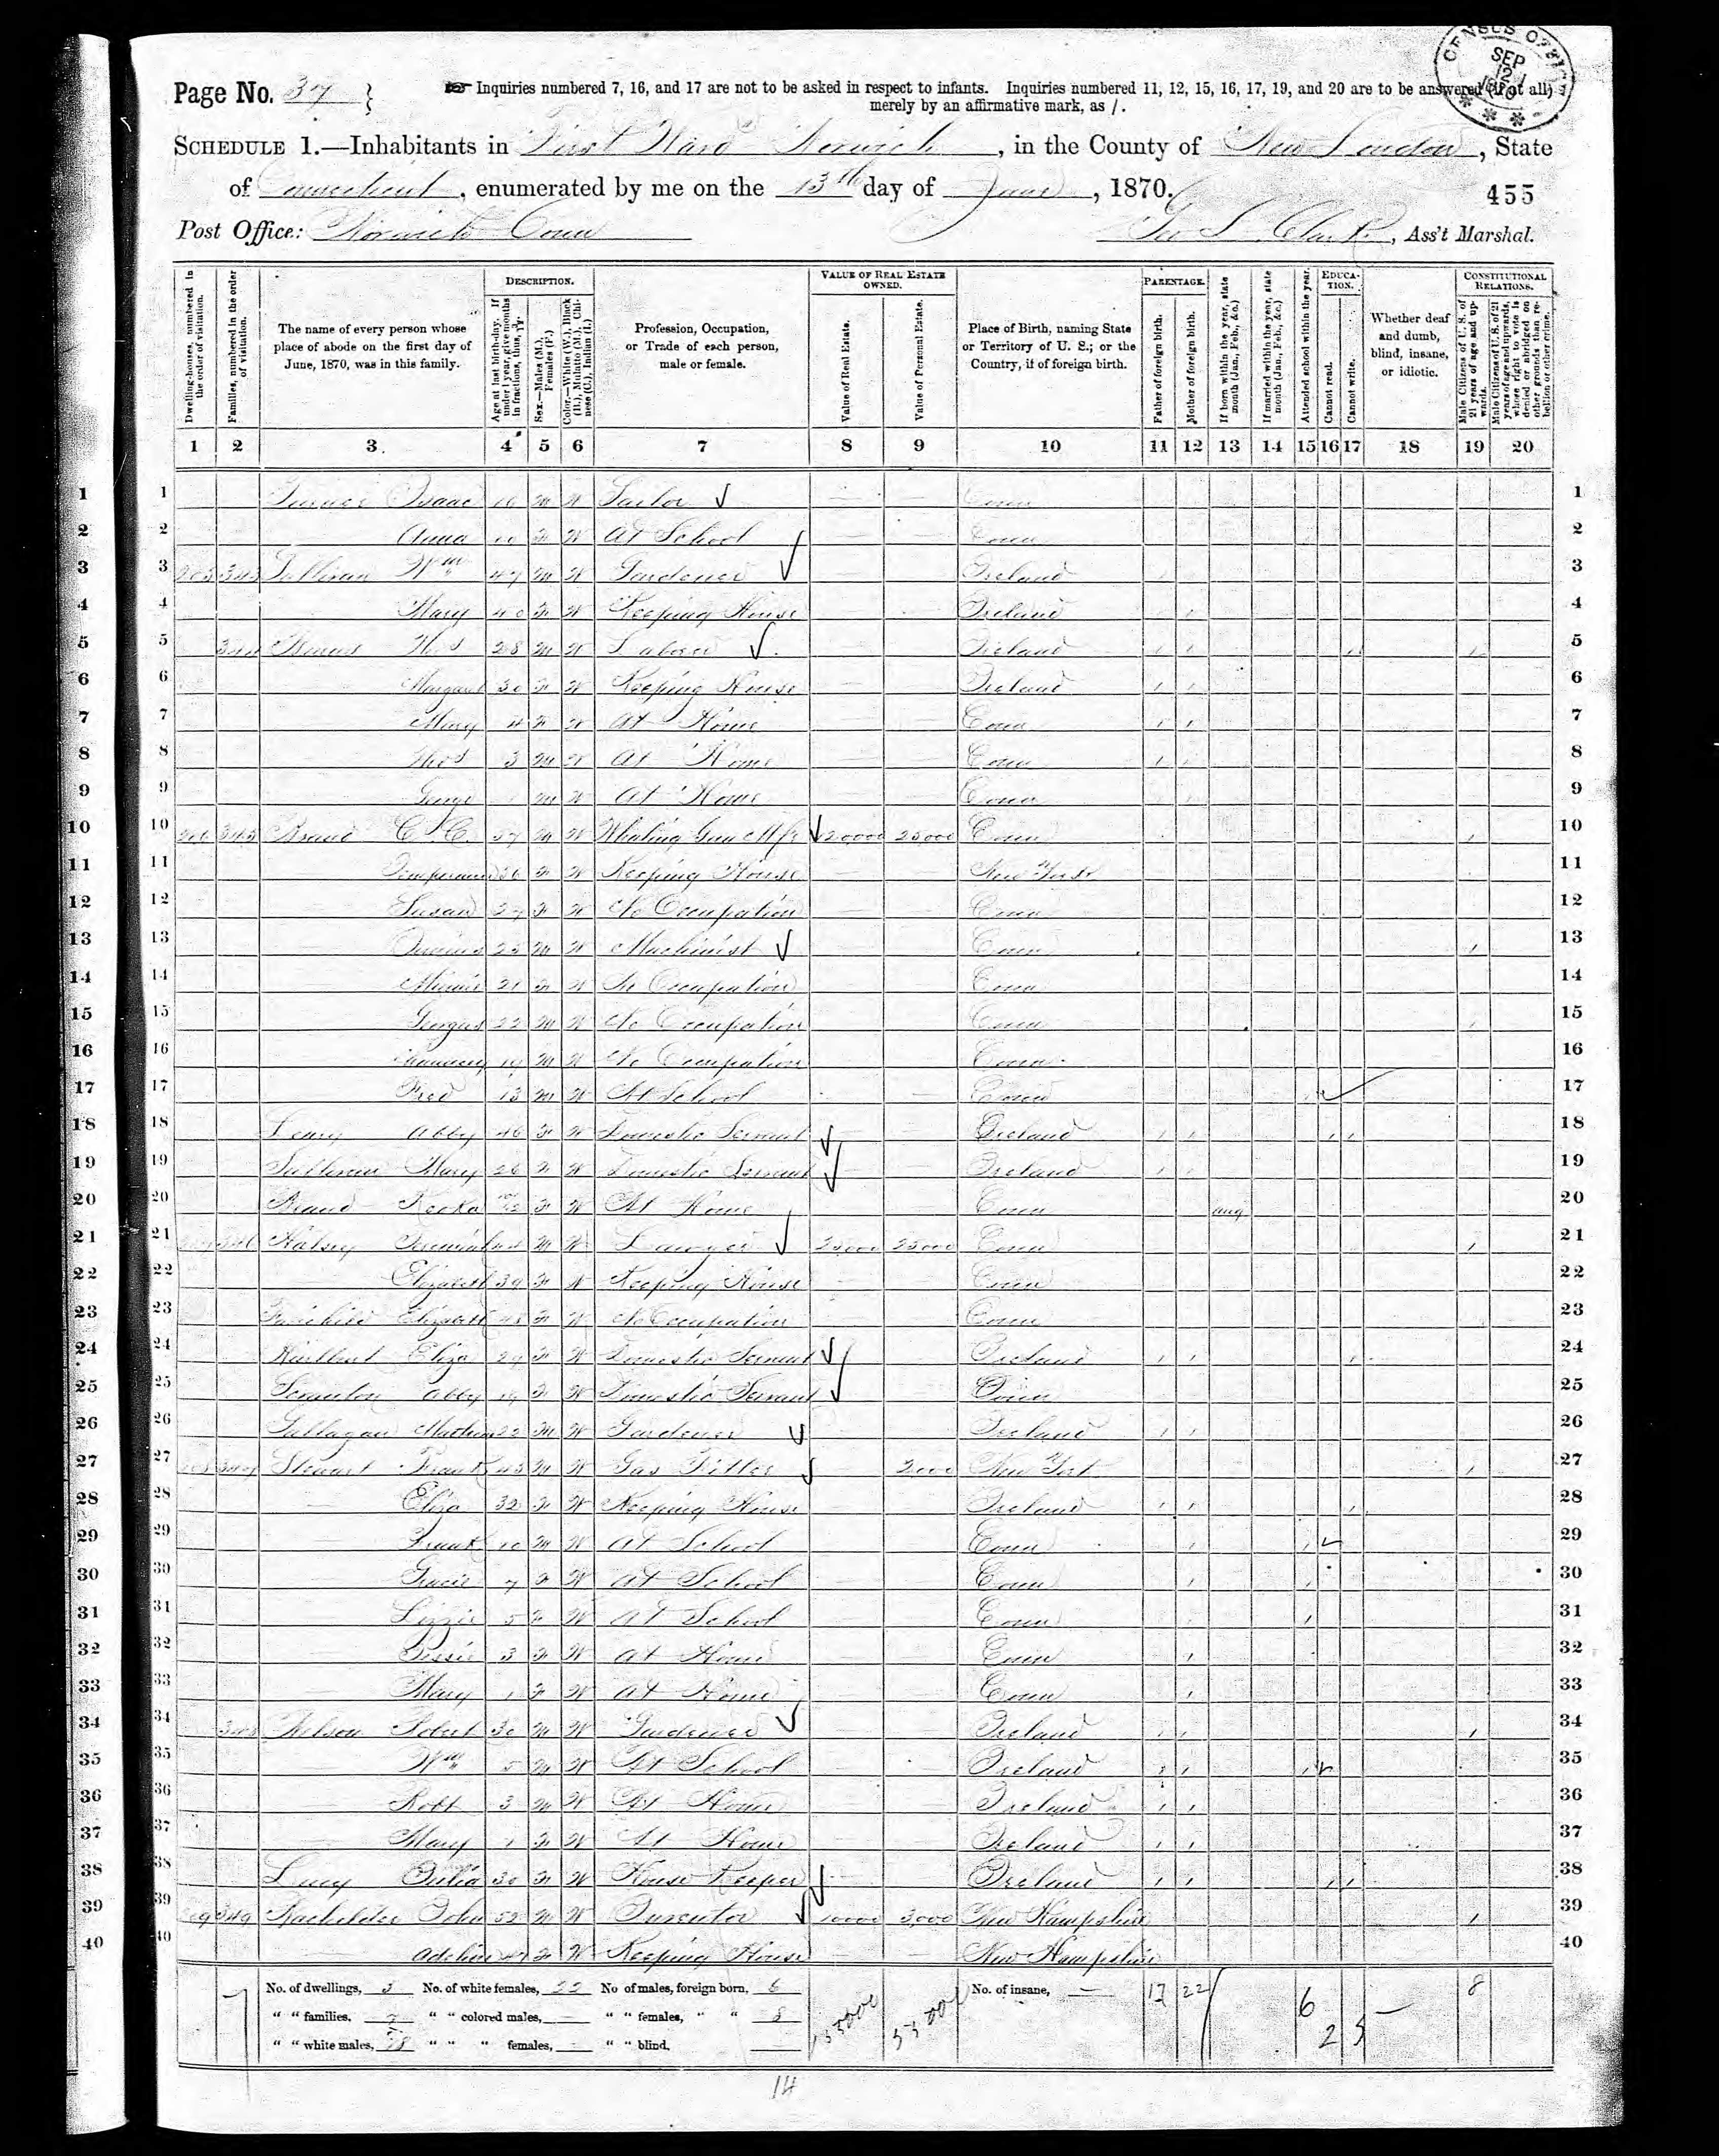 CENSUS OFFICE SEP 12 1870
Page No. 37
Inquiries numbered 7, 16, and 17 are not to be asked in respect to infants. Inquiries numbered 11, 12, 15, 16, 17, 19, and 20 are to be answered (if at all)
merely by an affirmative mark, as /.
SCHEDULE 1.—Inhabitants in First Ward Norwich, in the County of New London, State
of Connecticut, enumerated by me on the 13th day of June, 1870.
455
Post Office: Norwich Conn
Geo S. Clark, Ass't Marshal.
Dwelling-houses, numbered in the order of visitation.
Families, numbered in the order of visitation.
The name of every person whose place of abode on the first day of June, 1870, was in this family.
DESCRIPTION.
Age at last birth-day. If under 1 year, give months in fractions, thus, 3/12.
Sex.—Males (M.), Females (F.)
Color.—White (W.), Black (B.), Mulatto (M.), Chinese (C.), Indian (I.)
Profession, Occupation, or Trade of each person, male or female.
VALUE OF REAL ESTATE OWNED.
Value of Real Estate.
Value of Personal Estate.
Place of Birth, naming State or Territory of U. S.; or the Country, if of foreign birth.
PARENTAGE.
Father of foreign birth.
Mother of foreign birth.
If born within the year, state month (Jan., Feb., &c.)
If married within the year, state month (Jan., Feb., &c.)
Attended school within the year.
EDUCATION.
Cannot read.
Cannot write.
Whether deaf and dumb, blind, insane, or idiotic.
CONSTITUTIONAL RELATIONS.
Male Citizens of U. S. of 21 years of age and upwards.
Male Citizens of U. S. of 21 years of age and upwards, whose right to vote is denied or abridged on other grounds than rebellion or other crime.
1 2 3 4 5 6 7 8 9 10 11 12 13 14 15 16 17 18 19 20
1 Isaac M W Sailor Conn 1
2 Anna F W At School Conn 2
3 Sullivan Wm 47 M W Gardener Ireland 3
4 Mary 40 F W Keeping House Ireland 4
5 Thos 28 M W Laborer Ireland 5
6 Margaret 30 F W Keeping House Ireland 6
7 Mary 4 F W At Home Conn 7
8 Thos 3 M W At Home Conn 8
9 George 1 M W At Home Conn 9
10 345 Brand C. C. 57 M W Whaling Gun Mfr 20000 25000 Conn 10
11 F W Keeping House New York 11
12 Susan 27 F W No Occupation Conn 12
13 Junius 25 M W Machinist Conn 13
14 Minnie 21 F W No Occupation Conn 14
15 22 M W No Occupation Conn 15
16 Chauncey 19 M W No Occupation Conn 16
17 Fred 13 M W At School Conn 17
18 Leary Abby 46 F W Domestic Servant Ireland 18
19 Sullivan Mary 26 F W Domestic Servant Ireland 19
20 Brand F W At Home Conn Aug 20
21 346 Halsey Jeremiah M W Lawyer 25000 25000 Conn 21
22 Elizabeth 39 F W Keeping House Conn 22
23 Fairchild Elizabeth F W No Occupation Conn 23
24 Eliza 29 F W Domestic Servant Ireland 24
25 Abby 19 F W Domestic Servant Conn 25
26 22 M W Gardener Ireland 26
27 347 Stewart Frank 43 M W Gas Fitter 2000 New York 27
28 Eliza 32 F W Keeping House Ireland 28
29 Frank 10 M W At School Conn 29
30 Gracie 7 F W At School Conn 30
31 Lizzie 5 F W At School Conn 31
32 Bessie 3 F W At Home Conn 32
33 Mary 1 F W At Home Conn 33
34 348 Nelson Robert 30 M W Gardener Ireland 34
35 Wm 5 M W At School Ireland 35
36 Robt 3 M W At Home Ireland 36
37 Mary 1 F W At Home Ireland 37
38 Lucy Julia 30 F W House Keeper Ireland 38
39 349 Bachelder John 52 M W Inventor 10000 3,000 New Hampshire 39
40 Adeline 47 F W Keeping House New Hampshire 40
No. of dwellings, 5 No. of white females, 22 No of males, foreign born, 6 No. of insane, — 17 22 6 8
" " families, 7 " " colored males, — " " females, " " 8 55000 55000 2 5
" " white males, 18 " " " females, — " " blind,
14